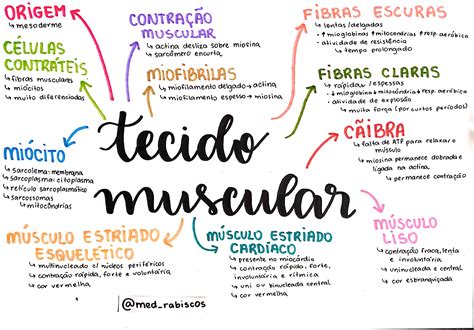 ORIGEM
↳ mesoderme
CÉLULAS
CONTRÁTEIS
↳ fibras musculares
↳ miócitos
↳ muito diferenciados
CONTRAÇÃO
MUSCULAR
↳ actina desliza sobre miosina
↳ sarcômero encurta
MIOFIBRILAS
↳ miofilamento delgado → actina
↳ miofilamento espesso → miosina
FIBRAS ESCURAS
↳ lentas/delgadas
↳ ↑ mioglobina ↑ mitocôndrias ↑ resp. aeróbica
↳ atividade de resistência
↳ tempo prolongado
FIBRAS CLARAS
↳ rápidas/espessas
↳ ↓ mioglobina ↓ mitocôndria ↓ resp. aeróbica
↳ atividade de explosão
↳ muito força (por curtos períodos)
CÃIBRA
↳ falta de ATP para relaxar o
músculo
↳ miosina permanece dobrada e
ligada na actina
↳ permanece contração
tecido
muscular
MIÓCITO
↳ sarcolema: membrana
↳ sarcoplasma: citoplasma
↳ retículo sarcoplasmático
↳ sarcossomas
↳ mitocôndrias
MÚSCULO ESTRIADO
ESQUELÉTICO
↳ multinucleado c/ núcleos periféricos
↳ contração rápida, forte e voluntária
↳ cor vermelha
MÚSCULO ESTRIADO
CARDÍACO
↳ presente no miocárdio
↳ contração rápida, forte,
involuntária e rítmica
↳ uni ou binuclear central
↳ cor vermelha
MÚSCULO
LISO
↳ contração fraca, lenta
e involuntária
↳ uninucleada central
↳ cor esbranquiçada
@med_rabiscos